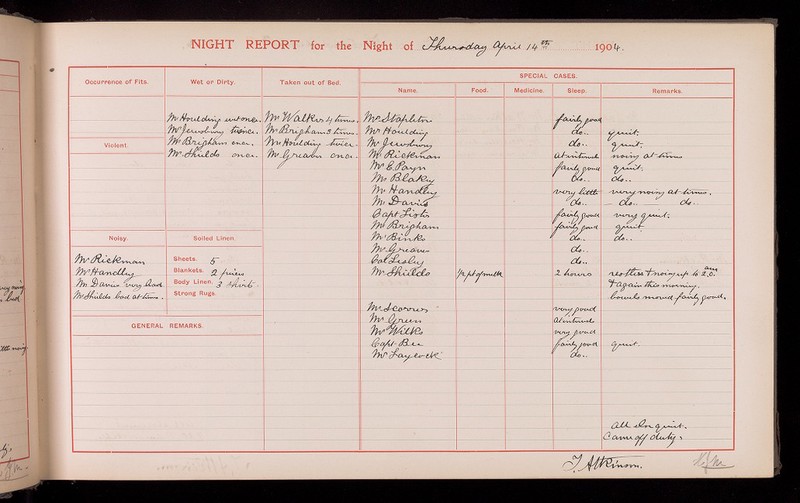 NIGHT REPORT for the Night of Thursday April 14th 1904.
Occurrence of Fits. Wet or Dirty. Taken out of Bed. SPECIAL CASES.
Name. Food. Medicine. Sleep. Remarks.
Mr Houlding wet once. Mr Walker 4 times. Mr Stapleton fairly good
Mr Jewsbury twice. Mr Brigham 3 times. Mr Houlding do.. quiet.
Violent. Mr Brigham once. Mr Houlding twice. Mr Jewsbury do.. quiet.
Mr Shields once. Mr Greaves once. Mr Rickman at intervals noisy at times
Mr E. Payn fairly good quiet.
Mr Blakey do.. do..
Mr Handley very little very noisy at times.
Mr Davies do.. do.. do..
Capt Lister fairly good very quiet.
Mr Brigham fairly good quiet.
Noisy. Soiled Linen Mr Binks do.. do..
Mr Greaves do..
Mr Rickman Sheets. 5 Col Lesley do..
Mr Handley Blankets. 2 pairs Mr Shields pt of milk 2 hours restless & noisy up to 2.0 am
Mr Davies very bad. Body Linen. 3 shirts & again this morning.
Mr Shields bad at times. Strong Rugs. bowels moved fairly good.
Mr Scorrer very good
Mr Green at intervals
GENERAL REMARKS. Mr Wilks very good
Capt Bee fairly good quiet.
Mr Laycock do..
All else quiet.
Came off duty.
T. Atkinson.